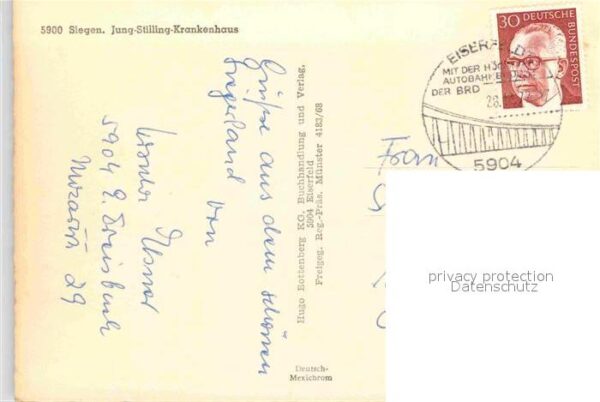 5900 Siegen. Jung-Stilling-Krankenhaus
Grüße aus dem schönen
Siegerland von
5904
29
Hugo Rottenberg KG, Buchhandlung und Verlag,
5904 Eiserfeld
Freigeg. Reg.-Präs. Münster 4183/68
Deutsch-
Mexichrom
30 DEUTSCHE
BUNDESPOST
EISERFELD
MIT DER
AUTOBAHN
DER BRD
5904
Frau
privacy protection
Datenschutz